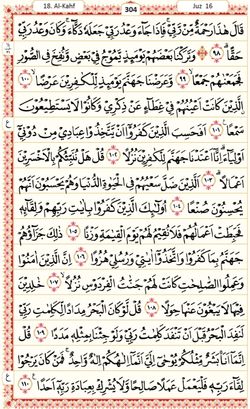 18. Al-Kahf 304 Juz 16
قَالَ هٰذَا رَحْمَةٌ مِّنْ رَّبِّيْ ۚ فَاِذَا جَآءَ وَعْدُ رَبِّيْ جَعَلَهٗ دَكَّآءَ ۚ وَكَانَ وَعْدُ رَبِّيْ
حَقًّا ۗ ﴿٩٨﴾ وَتَرَكْنَا بَعْضَهُمْ يَوْمَئِذٍ يَّمُوْجُ فِيْ بَعْضٍ وَّنُفِخَ فِى الصُّوْرِ
فَجَمَعْنٰهُمْ جَمْعًا ۙ ﴿٩٩﴾ وَّعَرَضْنَا جَهَنَّمَ يَوْمَئِذٍ لِّلْكٰفِرِيْنَ عَرْضًا ۙ ﴿١٠٠﴾
الَّذِيْنَ كَانَتْ اَعْيُنُهُمْ فِيْ غِطَآءٍ عَنْ ذِكْرِيْ وَكَانُوْا لَا يَسْتَطِيْعُوْنَ
سَمْعًا ﴿١٠١﴾ اَفَحَسِبَ الَّذِيْنَ كَفَرُوْٓا اَنْ يَّتَّخِذُوْا عِبَادِيْ مِنْ دُوْنِيْٓ
اَوْلِيَآءَ ۗ اِنَّآ اَعْتَدْنَا جَهَنَّمَ لِلْكٰفِرِيْنَ نُزُلًا ﴿١٠٢﴾ قُلْ هَلْ نُنَبِّئُكُمْ بِالْاَخْسَرِيْنَ
اَعْمَالًا ۗ ﴿١٠٣﴾ اَلَّذِيْنَ ضَلَّ سَعْيُهُمْ فِى الْحَيٰوةِ الدُّنْيَا وَهُمْ يَحْسَبُوْنَ اَنَّهُمْ
يُحْسِنُوْنَ صُنْعًا ﴿١٠٤﴾ اُولٰٓئِكَ الَّذِيْنَ كَفَرُوْا بِاٰيٰتِ رَبِّهِمْ وَلِقَآئِهٖ
فَحَبِطَتْ اَعْمَالُهُمْ فَلَا نُقِيْمُ لَهُمْ يَوْمَ الْقِيٰمَةِ وَزْنًا ﴿١٠٥﴾ ذٰلِكَ جَزَآؤُهُمْ
جَهَنَّمُ بِمَا كَفَرُوْا وَاتَّخَذُوْٓا اٰيٰتِيْ وَرُسُلِيْ هُزُوًا ﴿١٠٦﴾ اِنَّ الَّذِيْنَ اٰمَنُوْا
وَعَمِلُوا الصّٰلِحٰتِ كَانَتْ لَهُمْ جَنّٰتُ الْفِرْدَوْسِ نُزُلًا ۙ ﴿١٠٧﴾ خٰلِدِيْنَ
فِيْهَا لَا يَبْغُوْنَ عَنْهَا حِوَلًا ﴿١٠٨﴾ قُلْ لَّوْ كَانَ الْبَحْرُ مِدَادًا لِّكَلِمٰتِ رَبِّيْ
لَنَفِدَ الْبَحْرُ قَبْلَ اَنْ تَنْفَدَ كَلِمٰتُ رَبِّيْ وَلَوْ جِئْنَا بِمِثْلِهٖ مَدَدًا ﴿١٠٩﴾ قُلْ
اِنَّمَآ اَنَا بَشَرٌ مِّثْلُكُمْ يُوْحٰٓى اِلَيَّ اَنَّمَآ اِلٰهُكُمْ اِلٰهٌ وَّاحِدٌ ۚ فَمَنْ كَانَ يَرْجُوْا
لِقَآءَ رَبِّهٖ فَلْيَعْمَلْ عَمَلًا صَالِحًا وَّلَا يُشْرِكْ بِعِبَادَةِ رَبِّهٖٓ اَحَدًا ﴿١١٠﴾